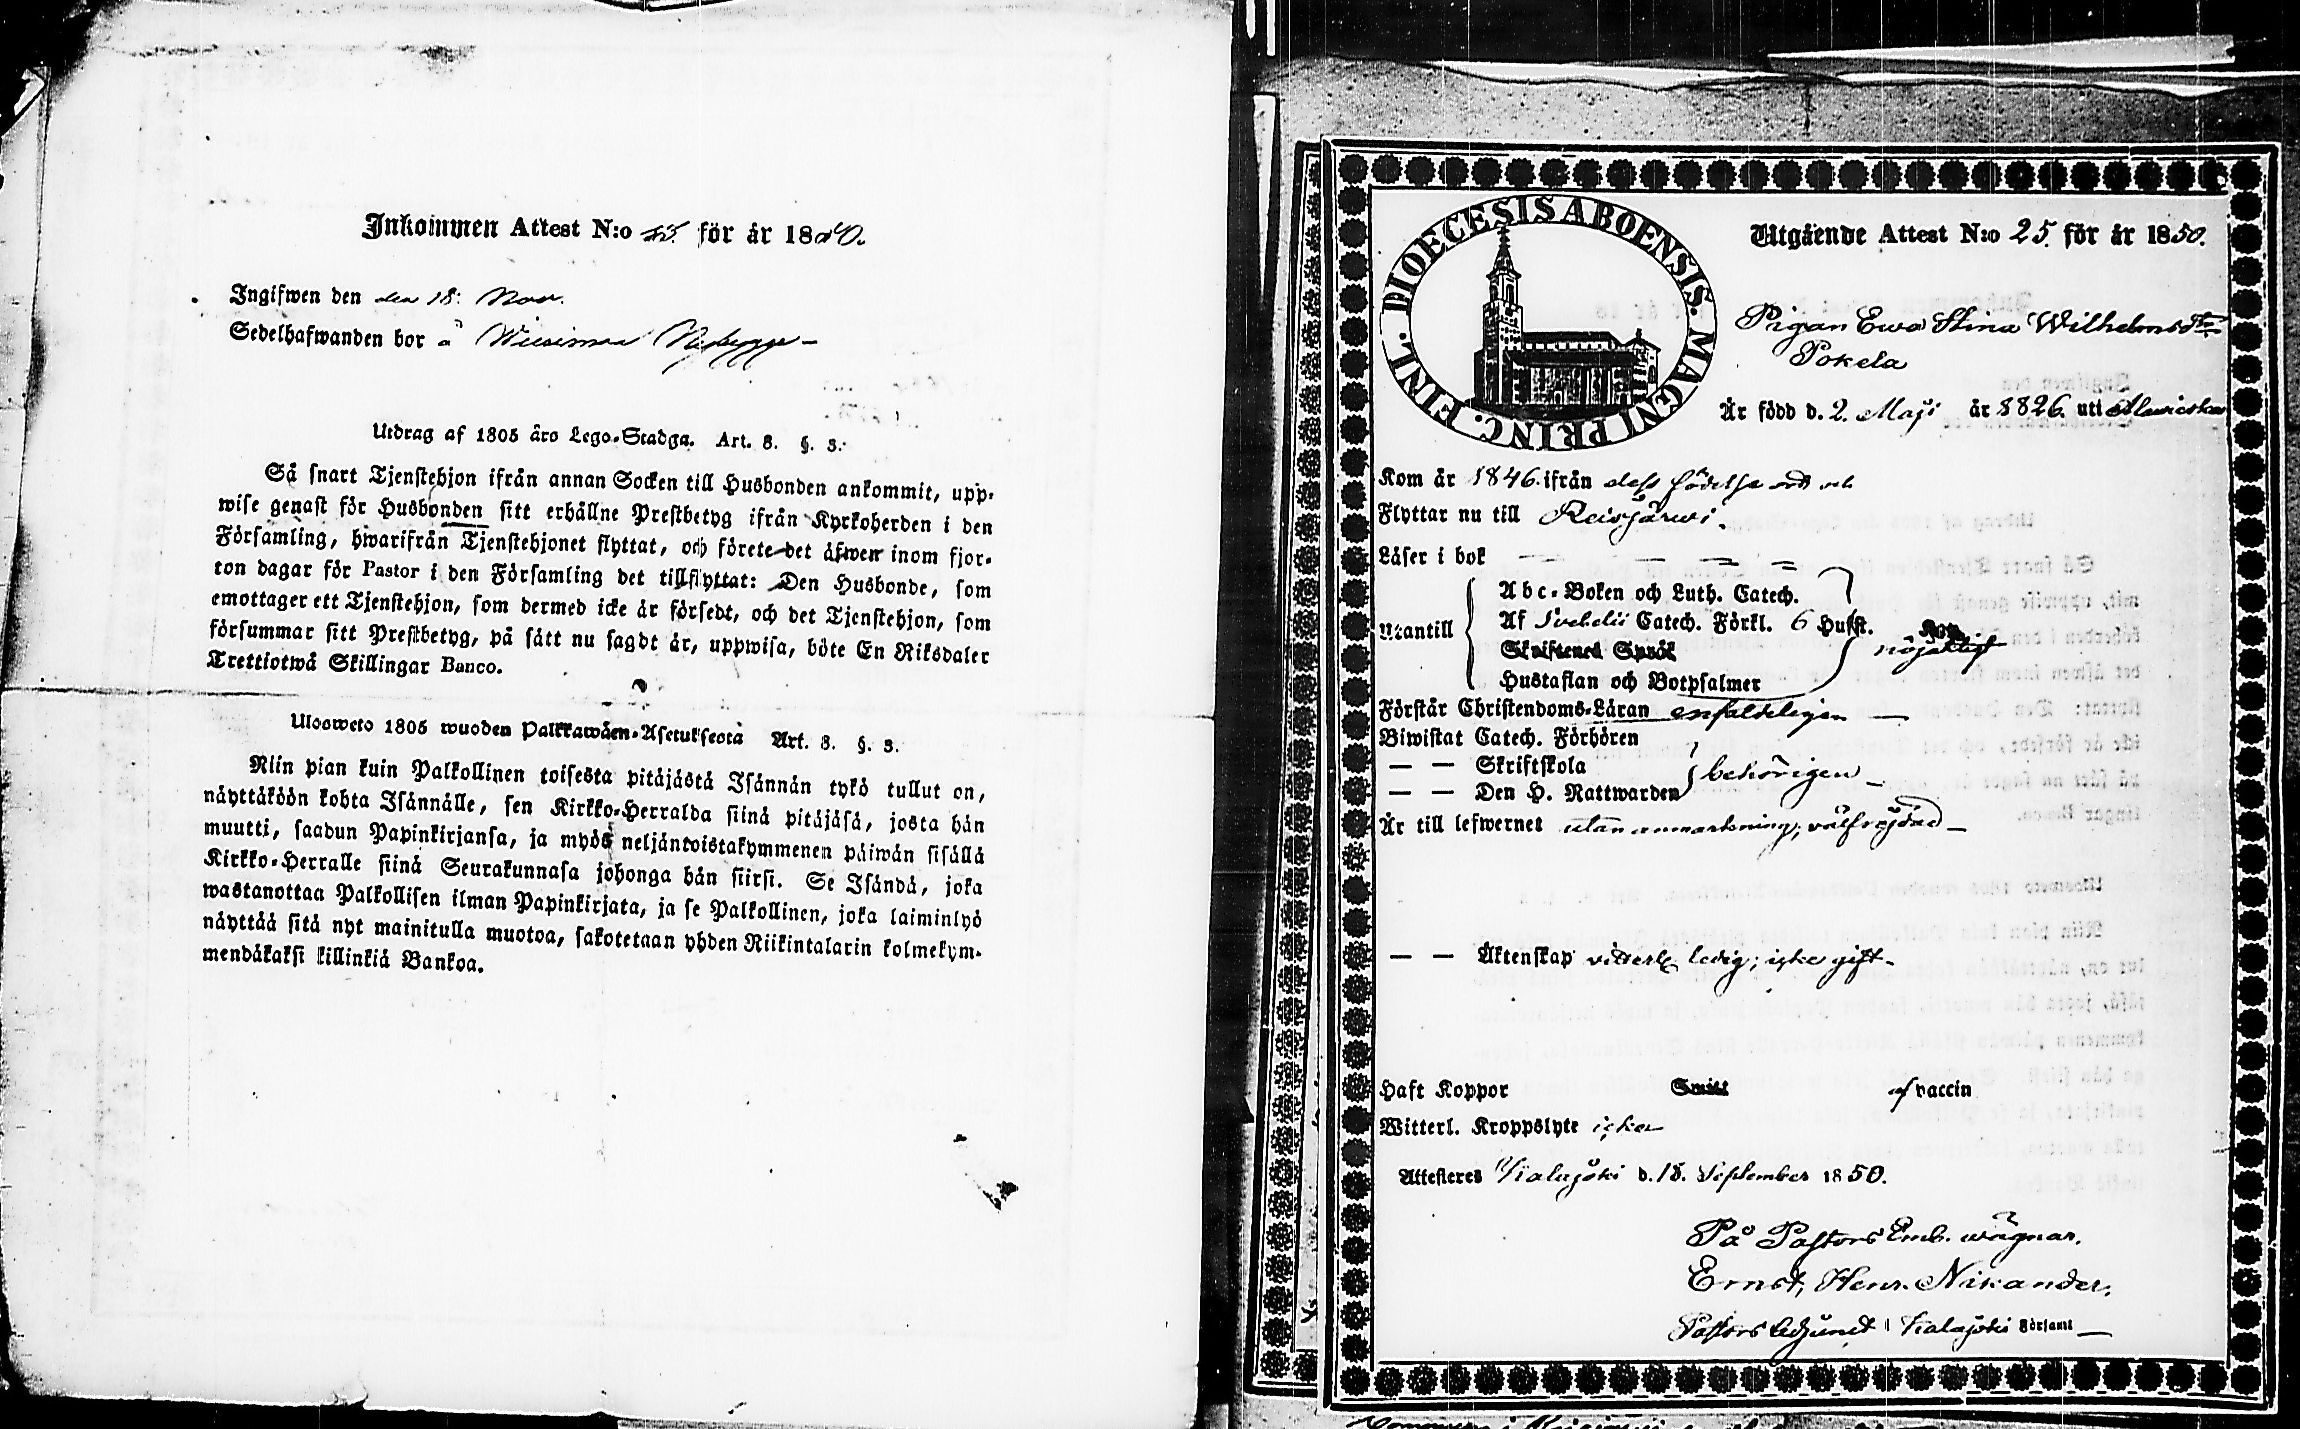 Inkommen Attest N:o för år 1850.
Ingifwen den den 18: Nov.
Sedelhafwanden bor å Nybygge
Utdrag af 1805 års Lego-Stadga. Art. 8. §. 3:
Så snart Tjenstehjon ifrån annan Socken till Husbonden ankommit, upp-
wise genast för Husbonden sitt erhållne Prestbetyg ifrån Kyrkoherden i den
Församling, hwarifrån Tjenstehjonet flyttat, och förete det äfwen inom fjor-
ton dagar för Pastor i den Församling det tillflyttat: Den Husbonde, som
emottager ett Tjenstehjon, som dermed icke är försedt, och det Tjenstehjon, som
försummar sitt Prestbetyg, på sätt nu sagdt är, uppwisa, böte En Riksdaler
Trettiotwå Skillingar Banco.
Ulosweto 1805 wuoden Palkkawäen-Asetuksesta Art. 8. §. 3.
Niin pian kuin Palkollinen toisesta pitäjästä Isännän tykö tullut on,
näyttäköön kohta Isännälle, sen Kirkko-Herralda siinä pitäjäsä, josta hän
muutti, saadun Papinkirjansa, ja myös neljäntoistakymmenen päiwän sisällä
Kirkko-Herralle siinä Seurakunnasa johonga hän siirsi. Se Isändä, joka
wastanottaa Palkollisen ilman Papinkirjata, ja se Palkollinen, joka laiminlyö
näyttää sitä nyt mainitulla muotoa, sakotetaan yhden Riikintalarin kolmekym-
mendäkaksi killinkiä Bankoa.
DIOECESIS ABOENSIS. MAGNI PRINC. FINL.
Utgående Attest N:o 25. för år 1850.
Pigan Ewa Stina Wilhelmsdtr
Pokela
Är född d. 2. Maji år 1826. uti Alavieska
Kom år 1846. ifrån dess födelse ort och
Flyttar nu till Reisjärwi.
Läser i bok — — — —
Utantill
Abc-Boken och Luth. Catech.
Af Svebelii Catech. Förkl. 6 Hufst.
Skriftenes Språk
nöjaktigt
Hustaflan och Botpsalmer
Förstår Christendoms-Läran enfaldeligen —
Biwistat Catech. Förhören
— — Skriftskola
behörigen —
— — Den H. Nattwarden
Är till lefwernet utan anmärkning, välfrejdad —
— — Äktenskap vitterl. ledig; icke gift.
Haft Koppor Smitt af vaccin
Witterl. Kroppslyte icke
Attesteres Kalajoki d. 18. September 1850.
På Pastors Emb. wägnar.
Ernst, Henr. Nikander.
Pastors Adjunct i Kalajoki Församl —